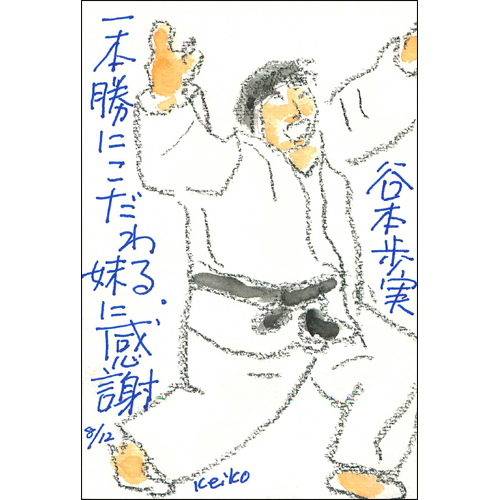 谷本歩実
一本勝にこだわる.
妹に感謝
8/12
Keiko